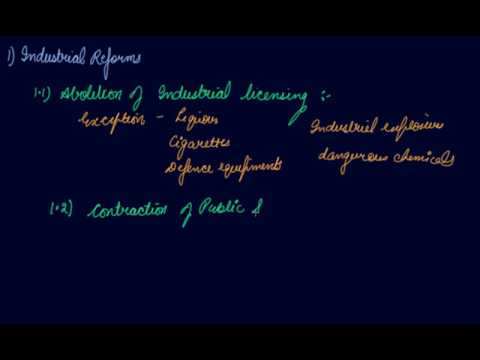 1) Industrial Reforms
1.1) Abolition of Industrial licensing :-
Exception - Liquors
Cigarettes
Defence equipments
Industrial explosives
dangerous chemicals
1.2) Contraction of Public S